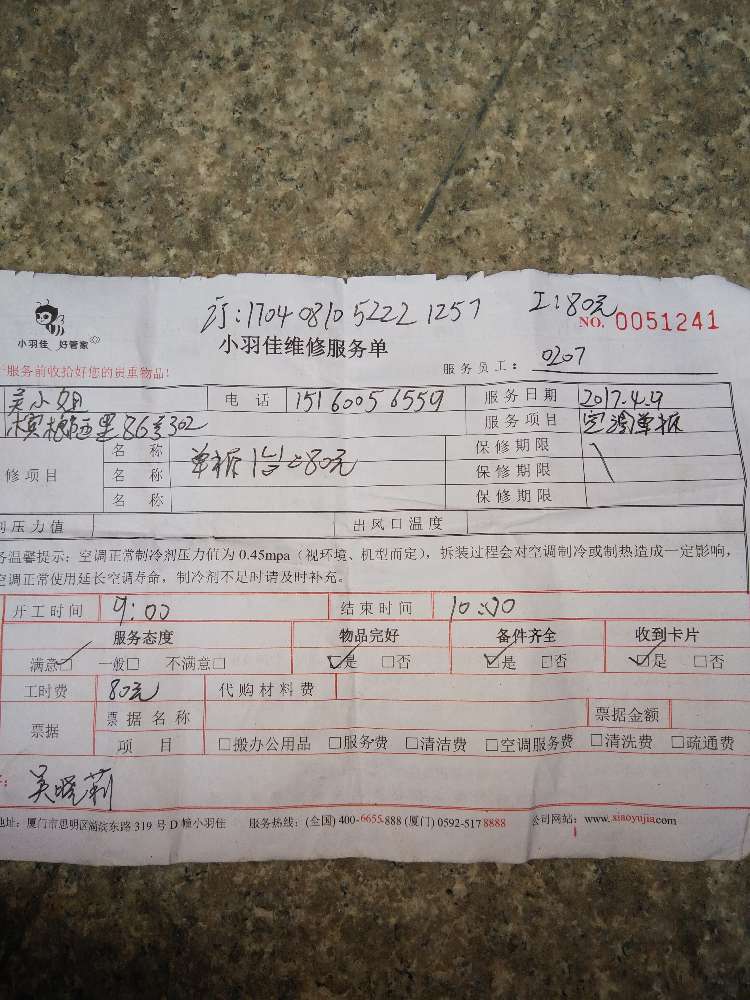 订:1704 0810 5222 1257 工:80元
小羽佳 好管家 NO. 0051241
小羽佳维修服务单
服务前收拾好您的贵重物品! 服务员工: 0207
吴小姐 电话 15160056559 服务日期 2017.4.9
86号302 服务项目 空调单拆
名称 单拆1台=80元 保修期限
修项目 名称 保修期限
名称 保修期限
压力值 出风口温度
温馨提示:空调正常制冷剂压力值为 0.45mpa(视环境、机型而定),拆装过程会对空调制冷或制热造成一定影响,
空调正常使用延长空调寿命,制冷剂不足时请及时补充。
开工时间 9:00 结束时间 10:00
服务态度 物品完好 备件齐全 收到卡片
满意□ 一般□ 不满意□ □是 □否 □是 □否 □是 □否
工时费 80元 代购材料费
票据 票据名称 票据金额
项目 □搬办公用品 □服务费 □清洁费 □空调服务费 □清洗费 □疏通费
吴晓莉
地址:厦门市思明区湖滨东路 319 号 D 幢小羽佳 服务热线:(全国) 400-6655-888 (厦门) 0592-517 8888 公司网站:www.xiaoyujia.com